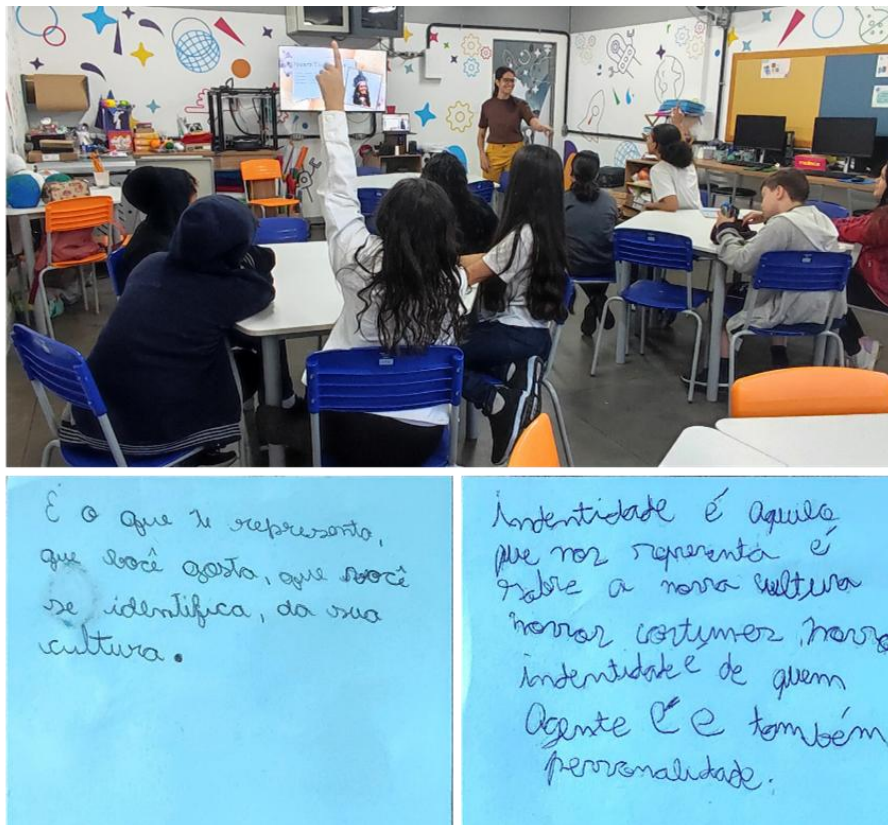 É o que te representa,
que você gosta, que você
se identifica, da sua
cultura.
indentidade é aquilo
que nos representa é
sobre a nossa cultura
nossos costumes, nossa
indentidade de quem
Agente É e também
personalidade.